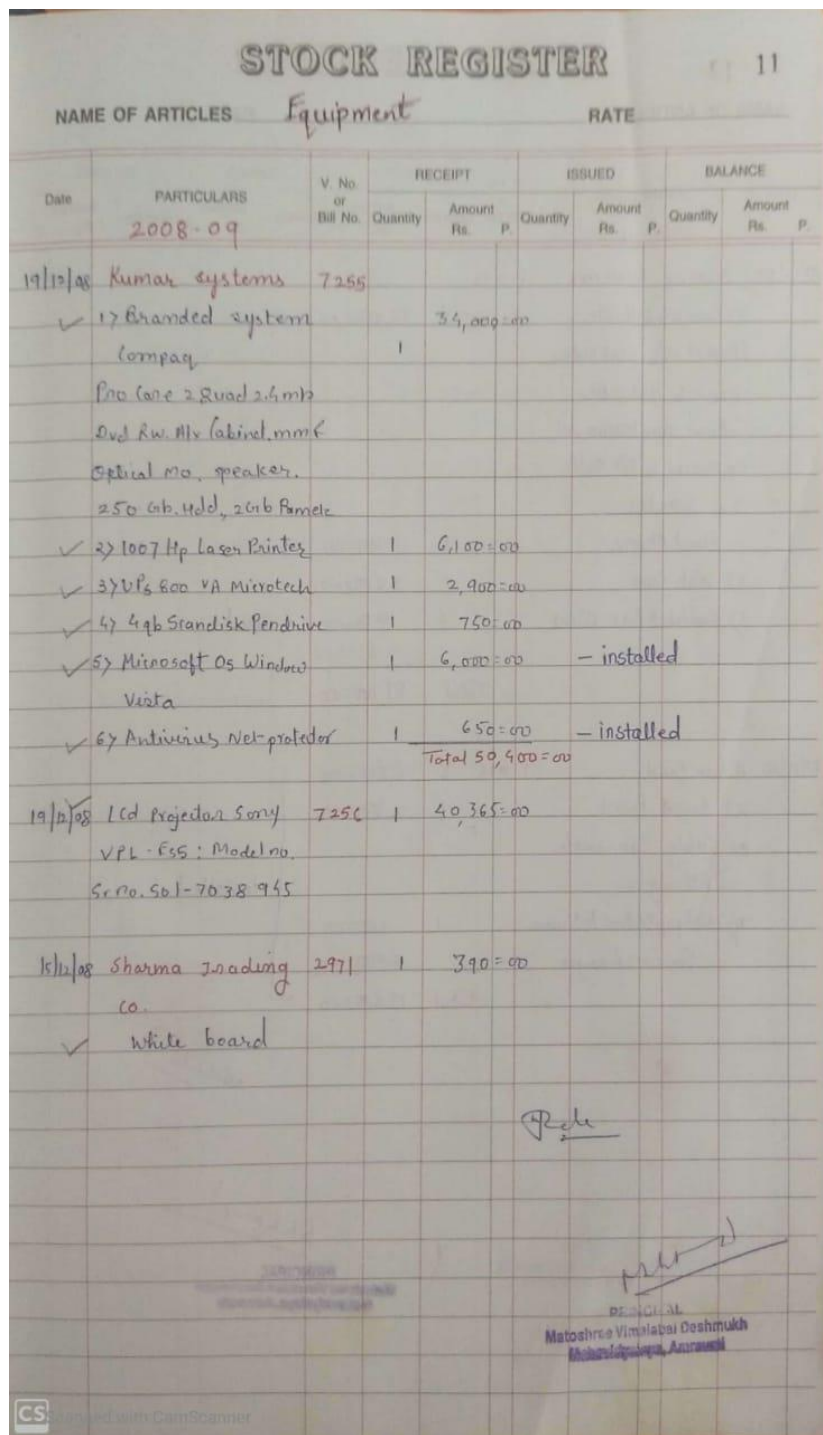 STOCK REGISTER 11
NAME OF ARTICLES Equipment RATE
Date PARTICULARS V. No. or Bill No. RECEIPT ISSUED BALANCE
Quantity Amount Rs. P. Quantity Amount Rs. P. Quantity Amount Rs. P.
2008-09
19/12/08 Kumar systems 7255
1) Branded system 34,000=00
Compaq 1
Pro Core 2 Quad 2.4 mb
Dvd Rw. Cabinet. mm
Optical mo, speaker.
250 Gb. Hdd, 2Gb
2) 1007 Hp Laser Printer 1 6,100=00
3) UPS 800 VA Microtech 1 2,900=00
4) 4gb Scandisk Pendrive 1 750=00
5) Microsoft Os Window 1 6,000=00 - installed
Vista
6) Antivirus Net-protedor 1 650=00 - installed
Total 50,400=00
19/12/08 Lcd Projector Sony 7256 1 40,365=00
VPL-ES5: Model no.
Sr no. S01-7038945
15/12/08 Sharma Trading 2971 1 390=00
co.
White board
PRINCIPAL
Matoshree Vimalabai Deshmukh
Mahavidyalaya, Amravati
CS Scanned with CamScanner